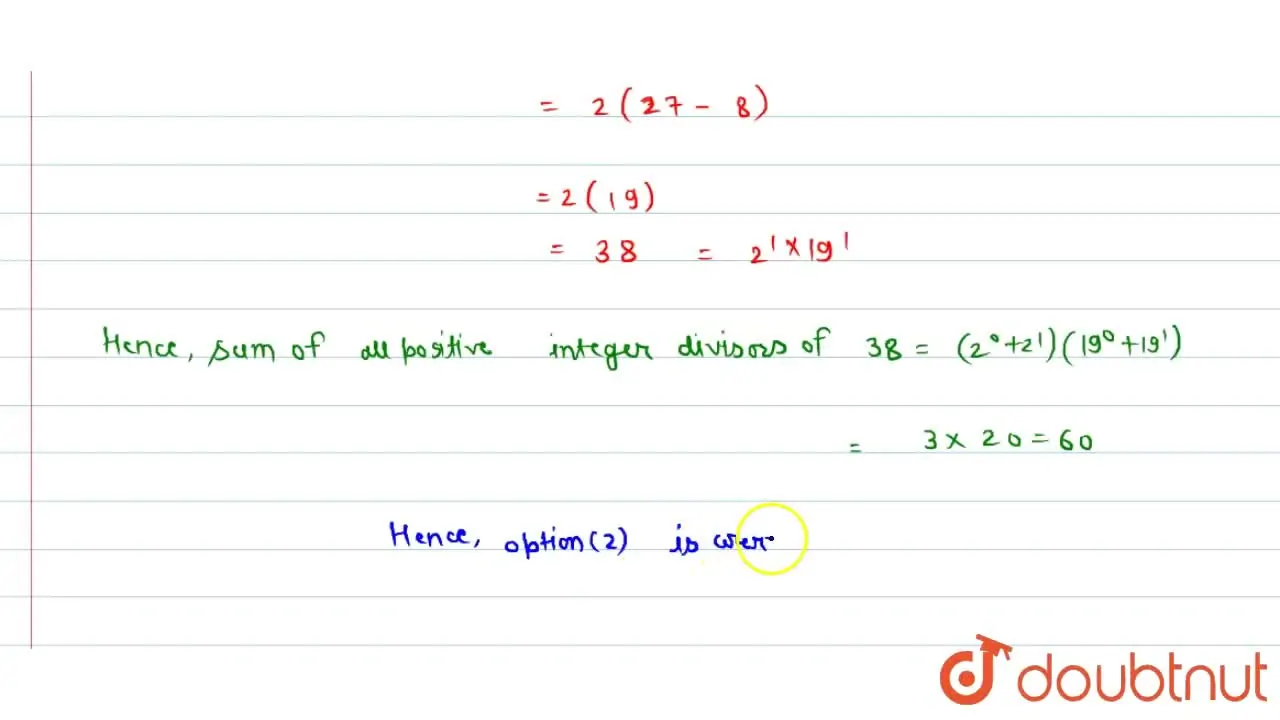 = 2 ( 27 - 8 )
= 2 ( 19 )
= 38 = 2¹ × 19¹
Hence, sum of all positive integer divisors of 38 = (2⁰+2¹)(19⁰+19¹)
= 3 × 20 = 60
Hence, option (2) is
doubtnut